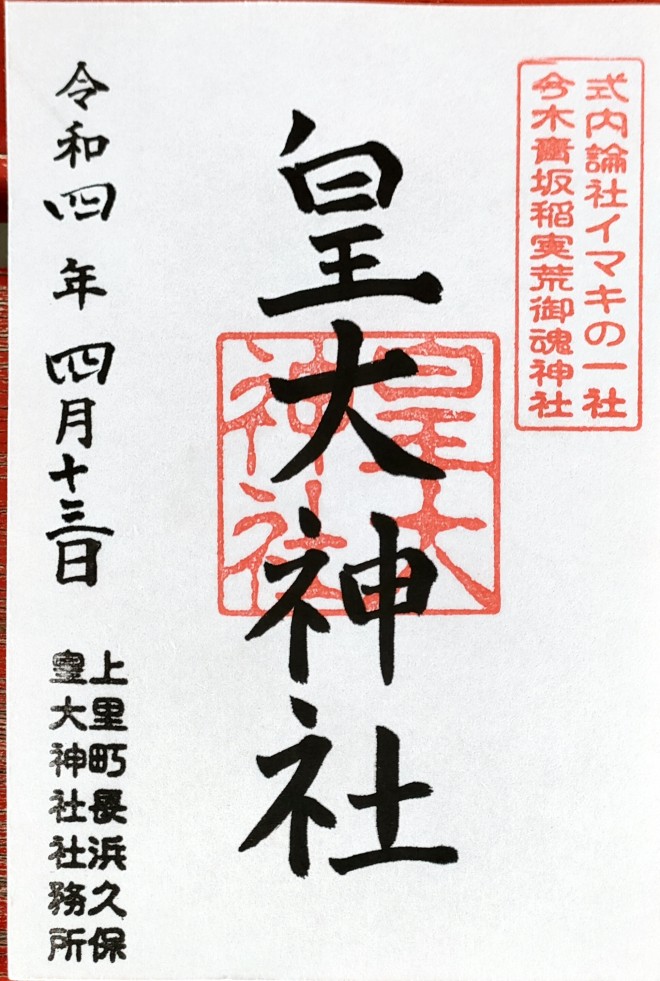 式内論社イマキの一社
今木青坂稲実荒御魂神社
皇大神社
皇大
神社
令和四年四月十三日
上里町長浜久保
皇大神社社務所